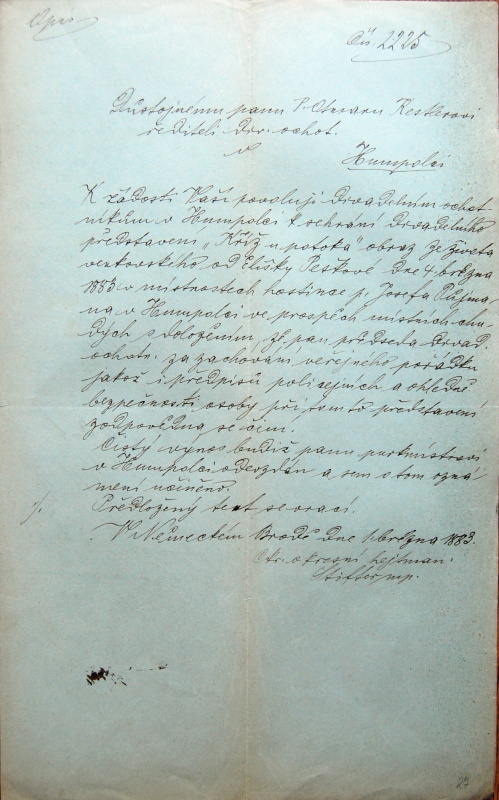 Opis
Čís. 2225
Důstojnému panu P. Otmaru Reskerovi
řediteli div. ochot.
v
Humpolci
K žádosti Vaší povoluji divadelním ochot
níkům v Humpolci k sehrání divadelního
představení „Kříž u potoka" obraz ze života
venkovského od Elišky Peškové dne 4 března
1883 v místnostech hostince p. Josefa
na v Humpolci ve prospěch místních chu
dých s doložením, že pan předseda divad.
ochotn. za zachování veřejného pořádku
jakož i předpisů policejních a ohledně
bezpečnosti osoby při tomto představení
zodpovědna se činí.
Čistý výnos budiž panu purkmistrovi
v Humpolci odevzdán a sem o tom ozná
mení učiněno.
Předložený text se vrací.
V Německém Brodě dne 1. března 1883.
Ck. okresní hejtman:
Stifter mp.
27